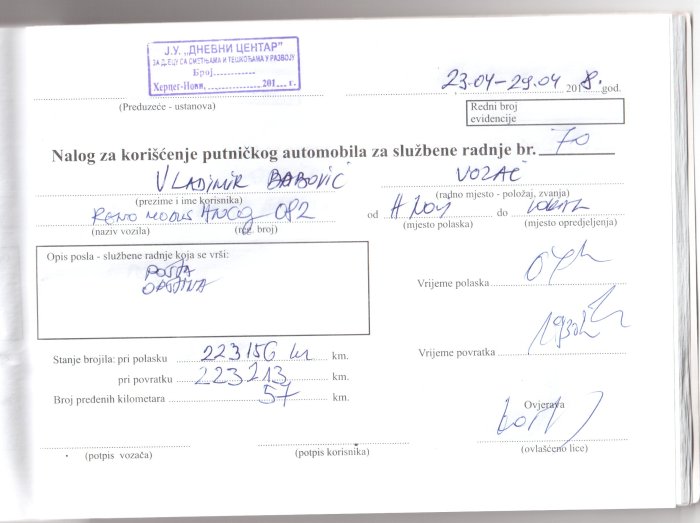 Ј.У. „ДНЕВНИ ЦЕНТАР"
ЗА ДЈЕЦУ СА СМЕТЊАМА И ТЕШКОЋАМА У РАЗВОЈУ
Број
Херцег-Нови, 201 г.
(Preduzeće - ustanova)
23.04-29.04 2018. god.
Redni broj
evidencije
Nalog za korišćenje putničkog automobila za službene radnje br. 70
VLADIMIR BABOVIĆ VOZAČ
(prezime i ime korisnika) (radno mjesto - položaj, zvanja)
RENO MODUS HNCG 082 od H NOVI do
(naziv vozila) (reg. broj) (mjesto polaska) (mjesto opredjeljenja)
Opis posla - službene radnje koja se vrši:
POŠTA
OPŠTINA
Vrijeme polaska
Vrijeme povratka
Stanje brojila: pri polasku 223156 km km.
pri povratku 223213 km.
Broj pređenih kilometara 57 km.
Ovjerava
(potpis vozača) (potpis korisnika) (ovlašćeno lice)